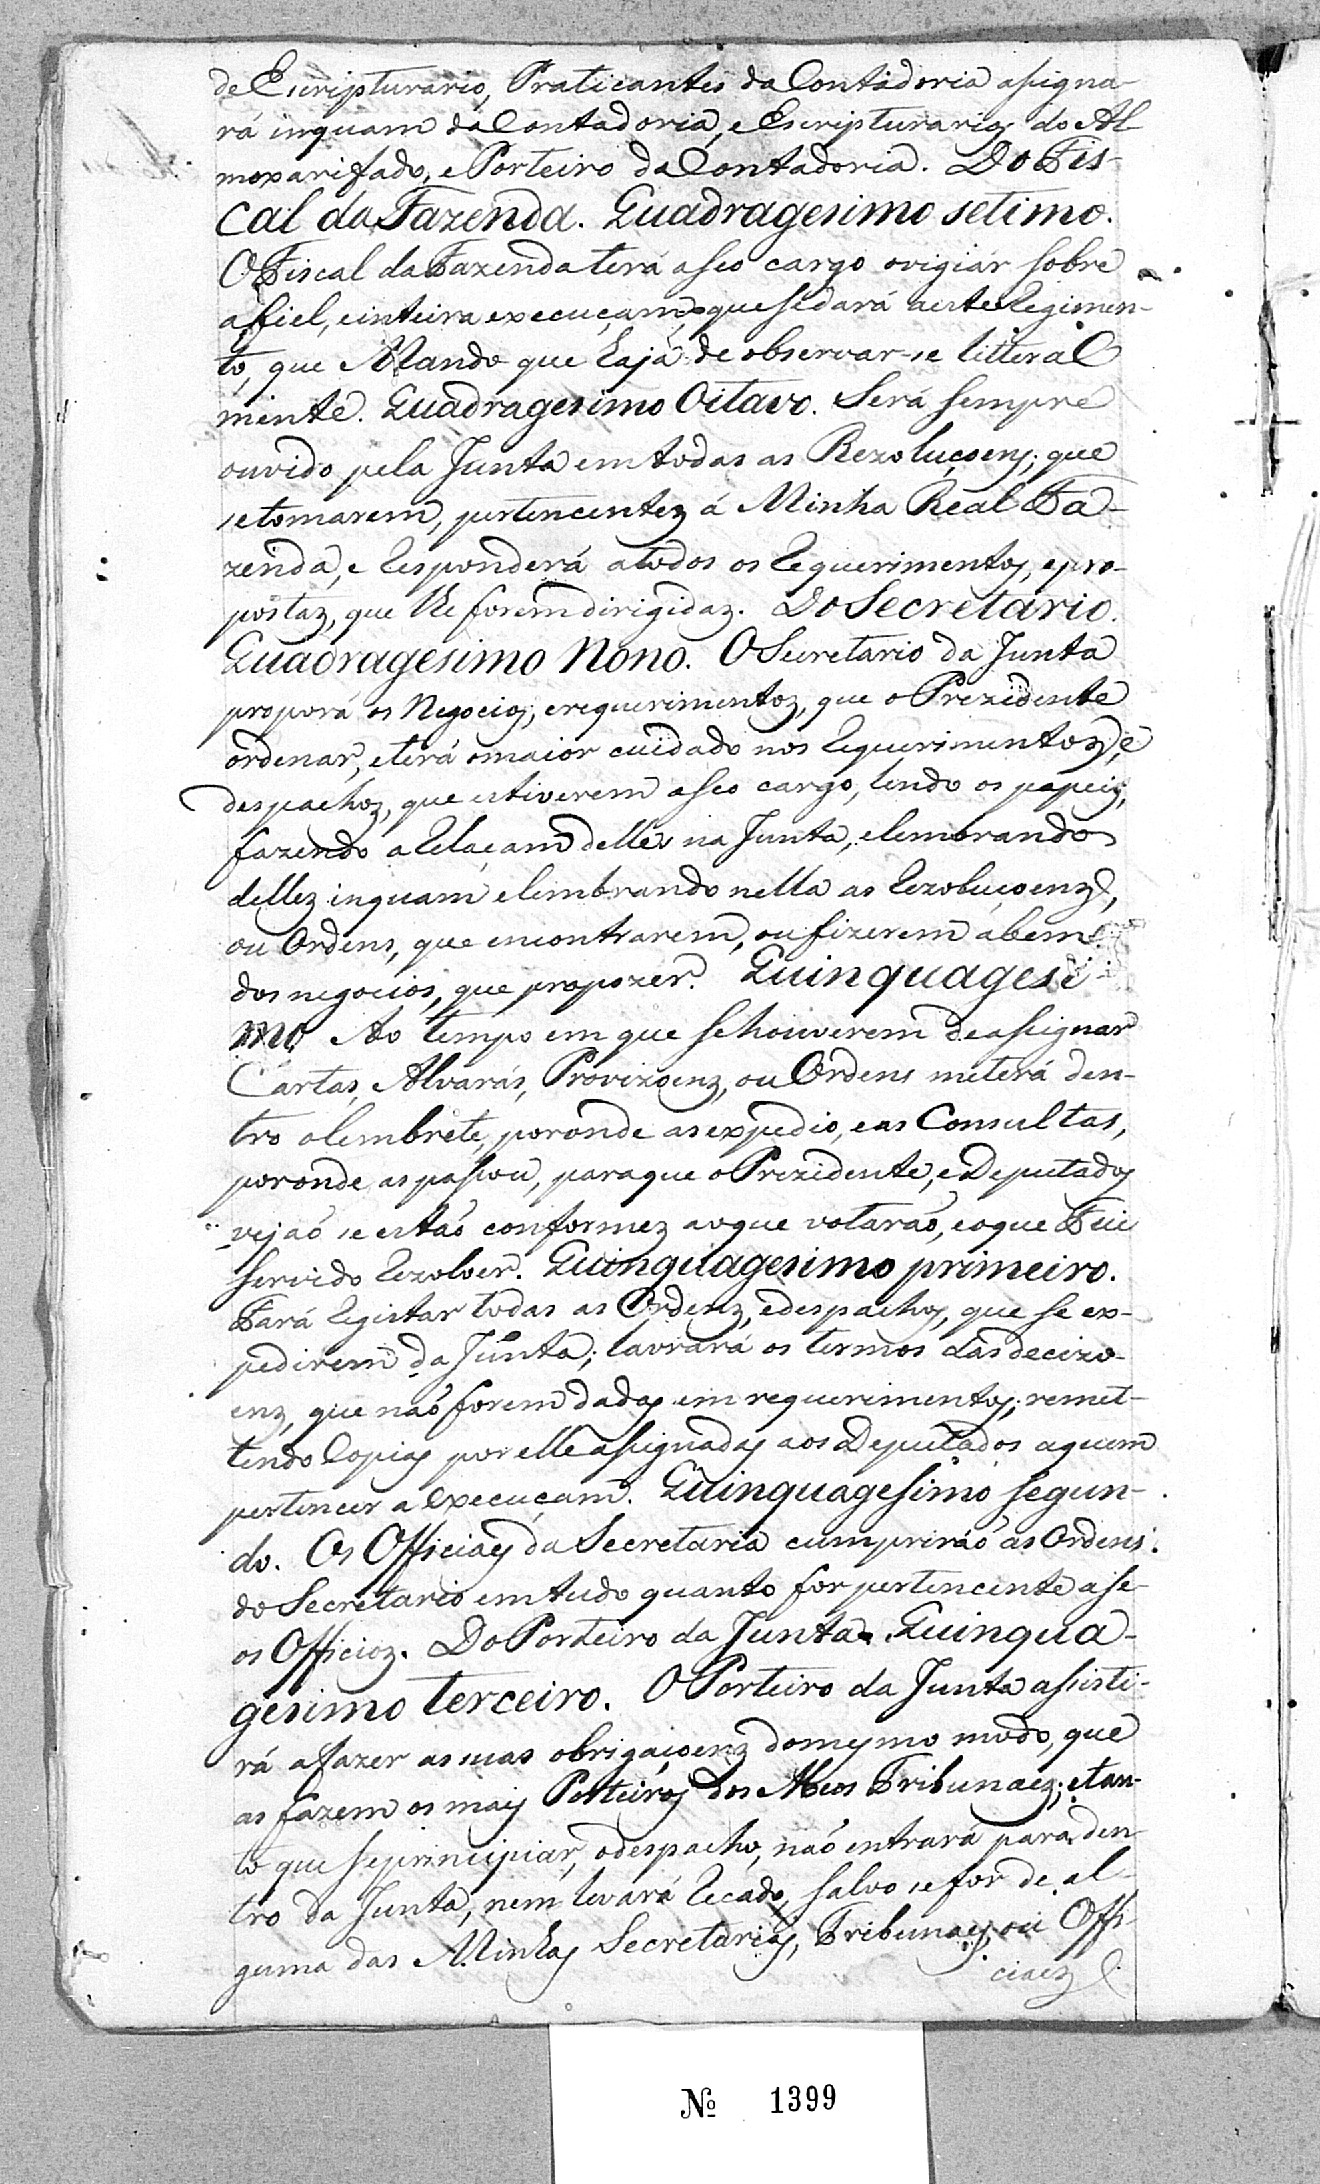 de Escripturario, Praticantes da Contadoria asigna-
rá inquam da Contadoria, e Escripturarios do Al-
moxarifado, e Porteiro da Contadoria. Do Fis-
cal da Fazenda. Quadragesimo setimo.
O Fiscal da Fazenda terá a seo cargo o vigiar sobre
a fiel, e inteira execuçam, que se dará a este Regimen-
to, que Mando que haja de observar-se litteral
mente. Quadragesimo Oitavo. Será sempre
ouvido pela Junta em todas as Rezoluçoens, que
se tomarem, pertencentez á Minha Real Fa-
zenda, e responderá a todos os requerimentos, e pro-
postaz, que lhe forem dirigidaz. Do Secretario.
Quadragesimo Nono. O Secretario da Junta
proporá os Negocios, e requerimentoz, que o Prezidente
ordenar, e terá o maior cuidado nos requerimentoz, e
despachoz, que estiverem a seo cargo, lendo os papeis,
fazendo a relaçam delles na Junta, e lembrando
dellez inquam e lembrando nella as rezoluçoenz,
ou Ordens, que encontrarem, ou fizerem a bem
dos negocios, que propozer. Quinquagesi
mo Ao tempo em que se houverem de assignar
Cartas, Alvarás, Provizoenz, ou Ordens meterá den-
tro o lembrete, por onde as expedio, e as Consultas,
por onde as passou, para que o Prezidente, e Deputados
vejaõ se estaõ conformez ao que votaraõ, e o que Fui
servido rezolver. Quinquagesimo primeiro.
Fará registar todas as Ordenz, e despachos, que se ex-
pedirem da Junta; lavrará os termos das decizo-
enz, que naõ forem dados em requerimentos, remet-
tendo Copias por elle assignadas aos Deputados a quem
pertencer a execuçam. Quinquagesimo segun-
do. Os Officiaes da Secretaria cumpriráõ as Ordens
do Secretario em tudo quanto for pertencente a se-
os Officioz. Do Porteiro da Junta. Quinqua-
gesimo terceiro. O Porteiro da Junta assisti-
rá a fazer as suas obrigaçoenz do mesmo modo, que
as fazem os mais Porteiros dos Meos Tribunaez; e tan-
to que se principiar, o despacho, naõ entrará para den
tro da Junta, nem levará recado, salvo se for de al-
guma das Minhas Secretarias, Tribunaes, ou Offi-
ciaez
№ 1399